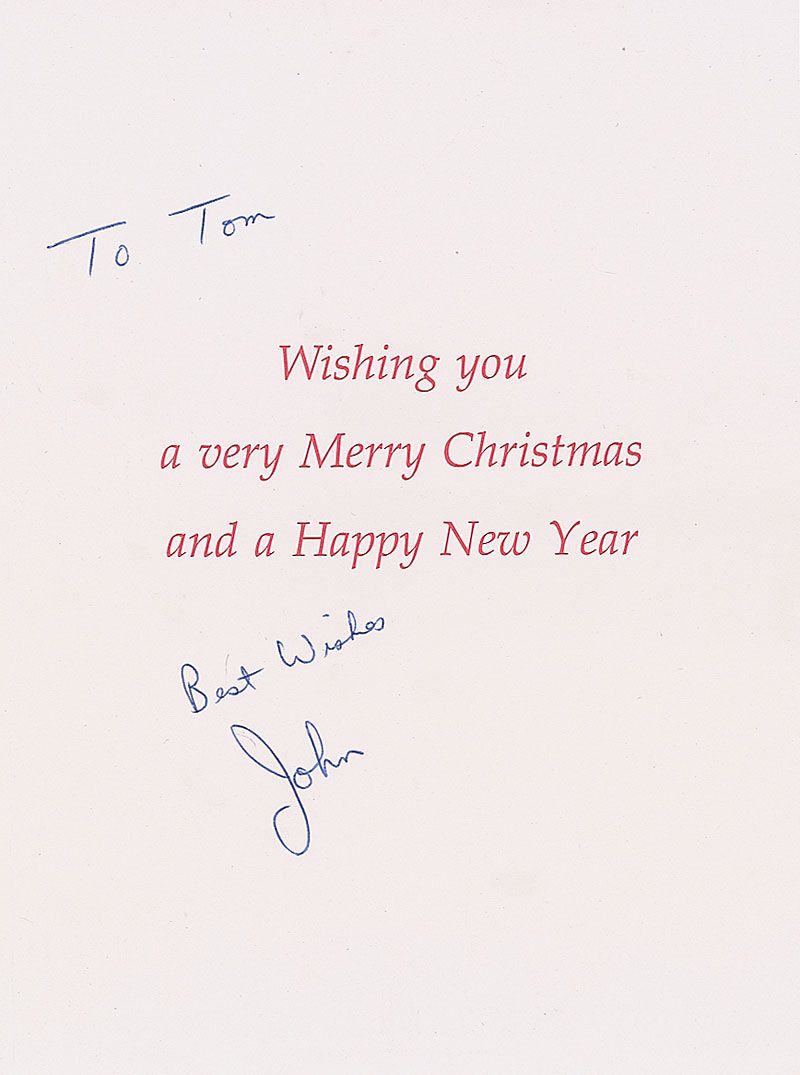 To Tom
Wishing you
a very Merry Christmas
and a Happy New Year
Best Wishes
John